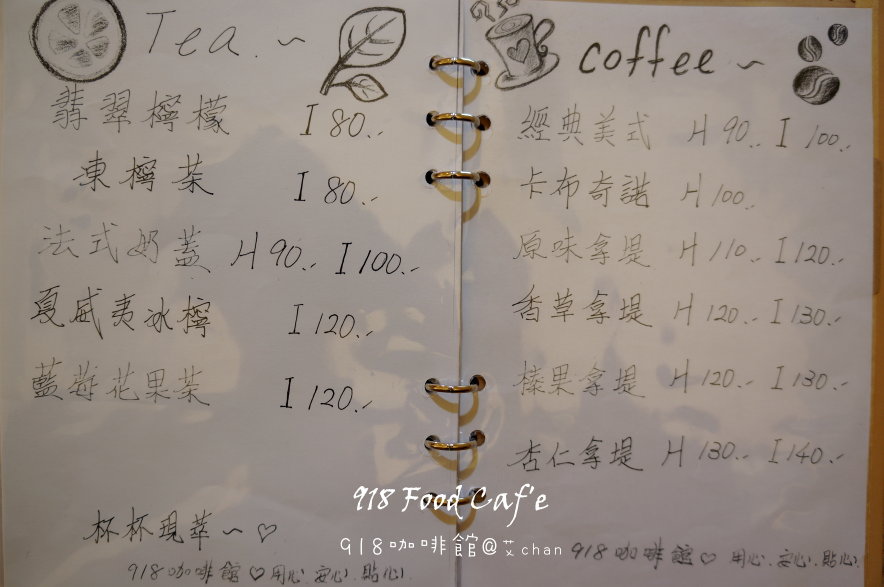 Tea.~
翡翠檸檬 I 80..
東檸茶 I 80..
法式奶蓋 H 90.. I 100..
夏威夷冰檸 I 120..
藍莓花果茶 I 120..
杯杯現萃~♡
918咖啡館♡用心.安心.貼心.
coffee~
經典美式 H 90.. I 100..
卡布奇諾 H 100..
原味拿堤 H 110.. I 120..
香草拿堤 H 120.. I 130..
榛果拿堤 H 120.. I 130..
杏仁拿堤 H 130.. I 140..
918咖啡館♡ 用心.安心.貼心.
918 Food Caf'e
918咖啡館@艾chan